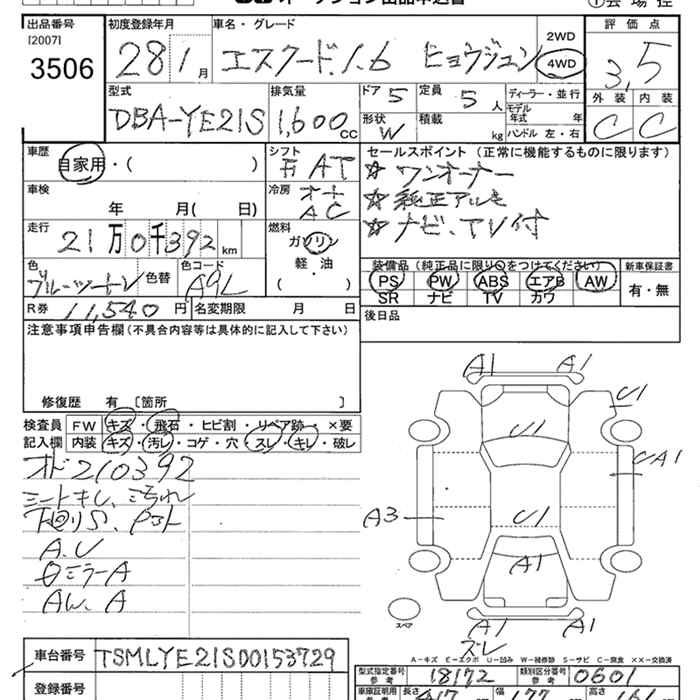 出品番号 初度登録年月 車名・グレード 2WD 評価点
[2007]
3506 28 1月 エスクード1.6 ヒョウジュン 4WD 3,5
型式 排気量 ドア 5 定員 5人 ディーラー・並行 外装 内装
DBA-YE21S 1,600cc 形状 W 積載 kg モデル年式 年 C C
ハンドル 左・右
車歴 シフト セールスポイント (正常に機能するものに限ります)
自家用・( ) AT ☆ ワンオーナー
車検 冷房 ☆ 純正アルミ
年 月( 日) オート AC ☆ ナビ、TV付
走行 燃料
21万0千392km ガソリン
軽・油
( ・ )
色 色替 色コード 装備品(純正品に限り○をつけてください) 新車保証書
ブルーツートン A9L PS PW ABS エアB AW 有・無
SR ナビ TV カワ
R券 11,540円 名変期限 月 日 後日品
注意事項申告欄(不具合内容等は具体的に記入して下さい)
修復歴 有 [箇所 ]
検査員 FW キズ・飛石・ヒビ割・リペア跡・×要
記入欄 内装 キズ・汚レ・コゲ・穴・スレ・キレ・破レ
オド210392
シートキレ、シミ汚れ
下回りS、Pコート
A.U
ミラーA
AW、A
A1 A1
U1
U1
UA1
A3
U1
A1
A1 A1
スレ
スペア
A-キズ E-エクボ U-凹み W-補修跡 S-サビ C-腐食 ××-交換済
車台番号 TSMLYE21S00153729
型式指定番号 参考 18172 類別区分番号 参考 0601
登録番号
車庫証明用 参考 長さ 417 幅 177 高さ 161